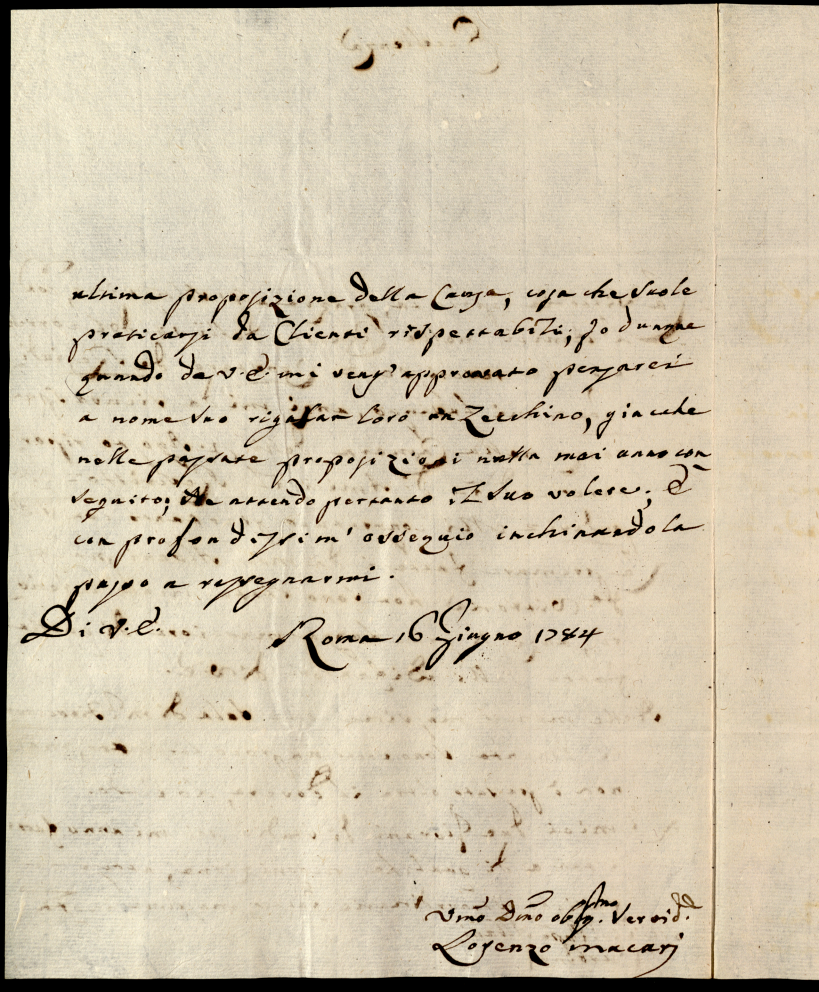 ultima proposizione della Causa, cosa che suole
praticarsi da Clienti rispettabili; Io dunque
quando da V. E. mi veng' approvato pensarei
a nome suo rigalar loro un Zecchino, giacche
nelle passate proposizioni nulla mai anno con
seguito; Ne attendo pertanto il suo volere; E
con profondissim' ossequio inchinandola
passo a rassegnarmi.
Di V. E. Roma 16 Giugno 1784
Vmo Dmo obligmo Servid.
Lorenzo Macarj